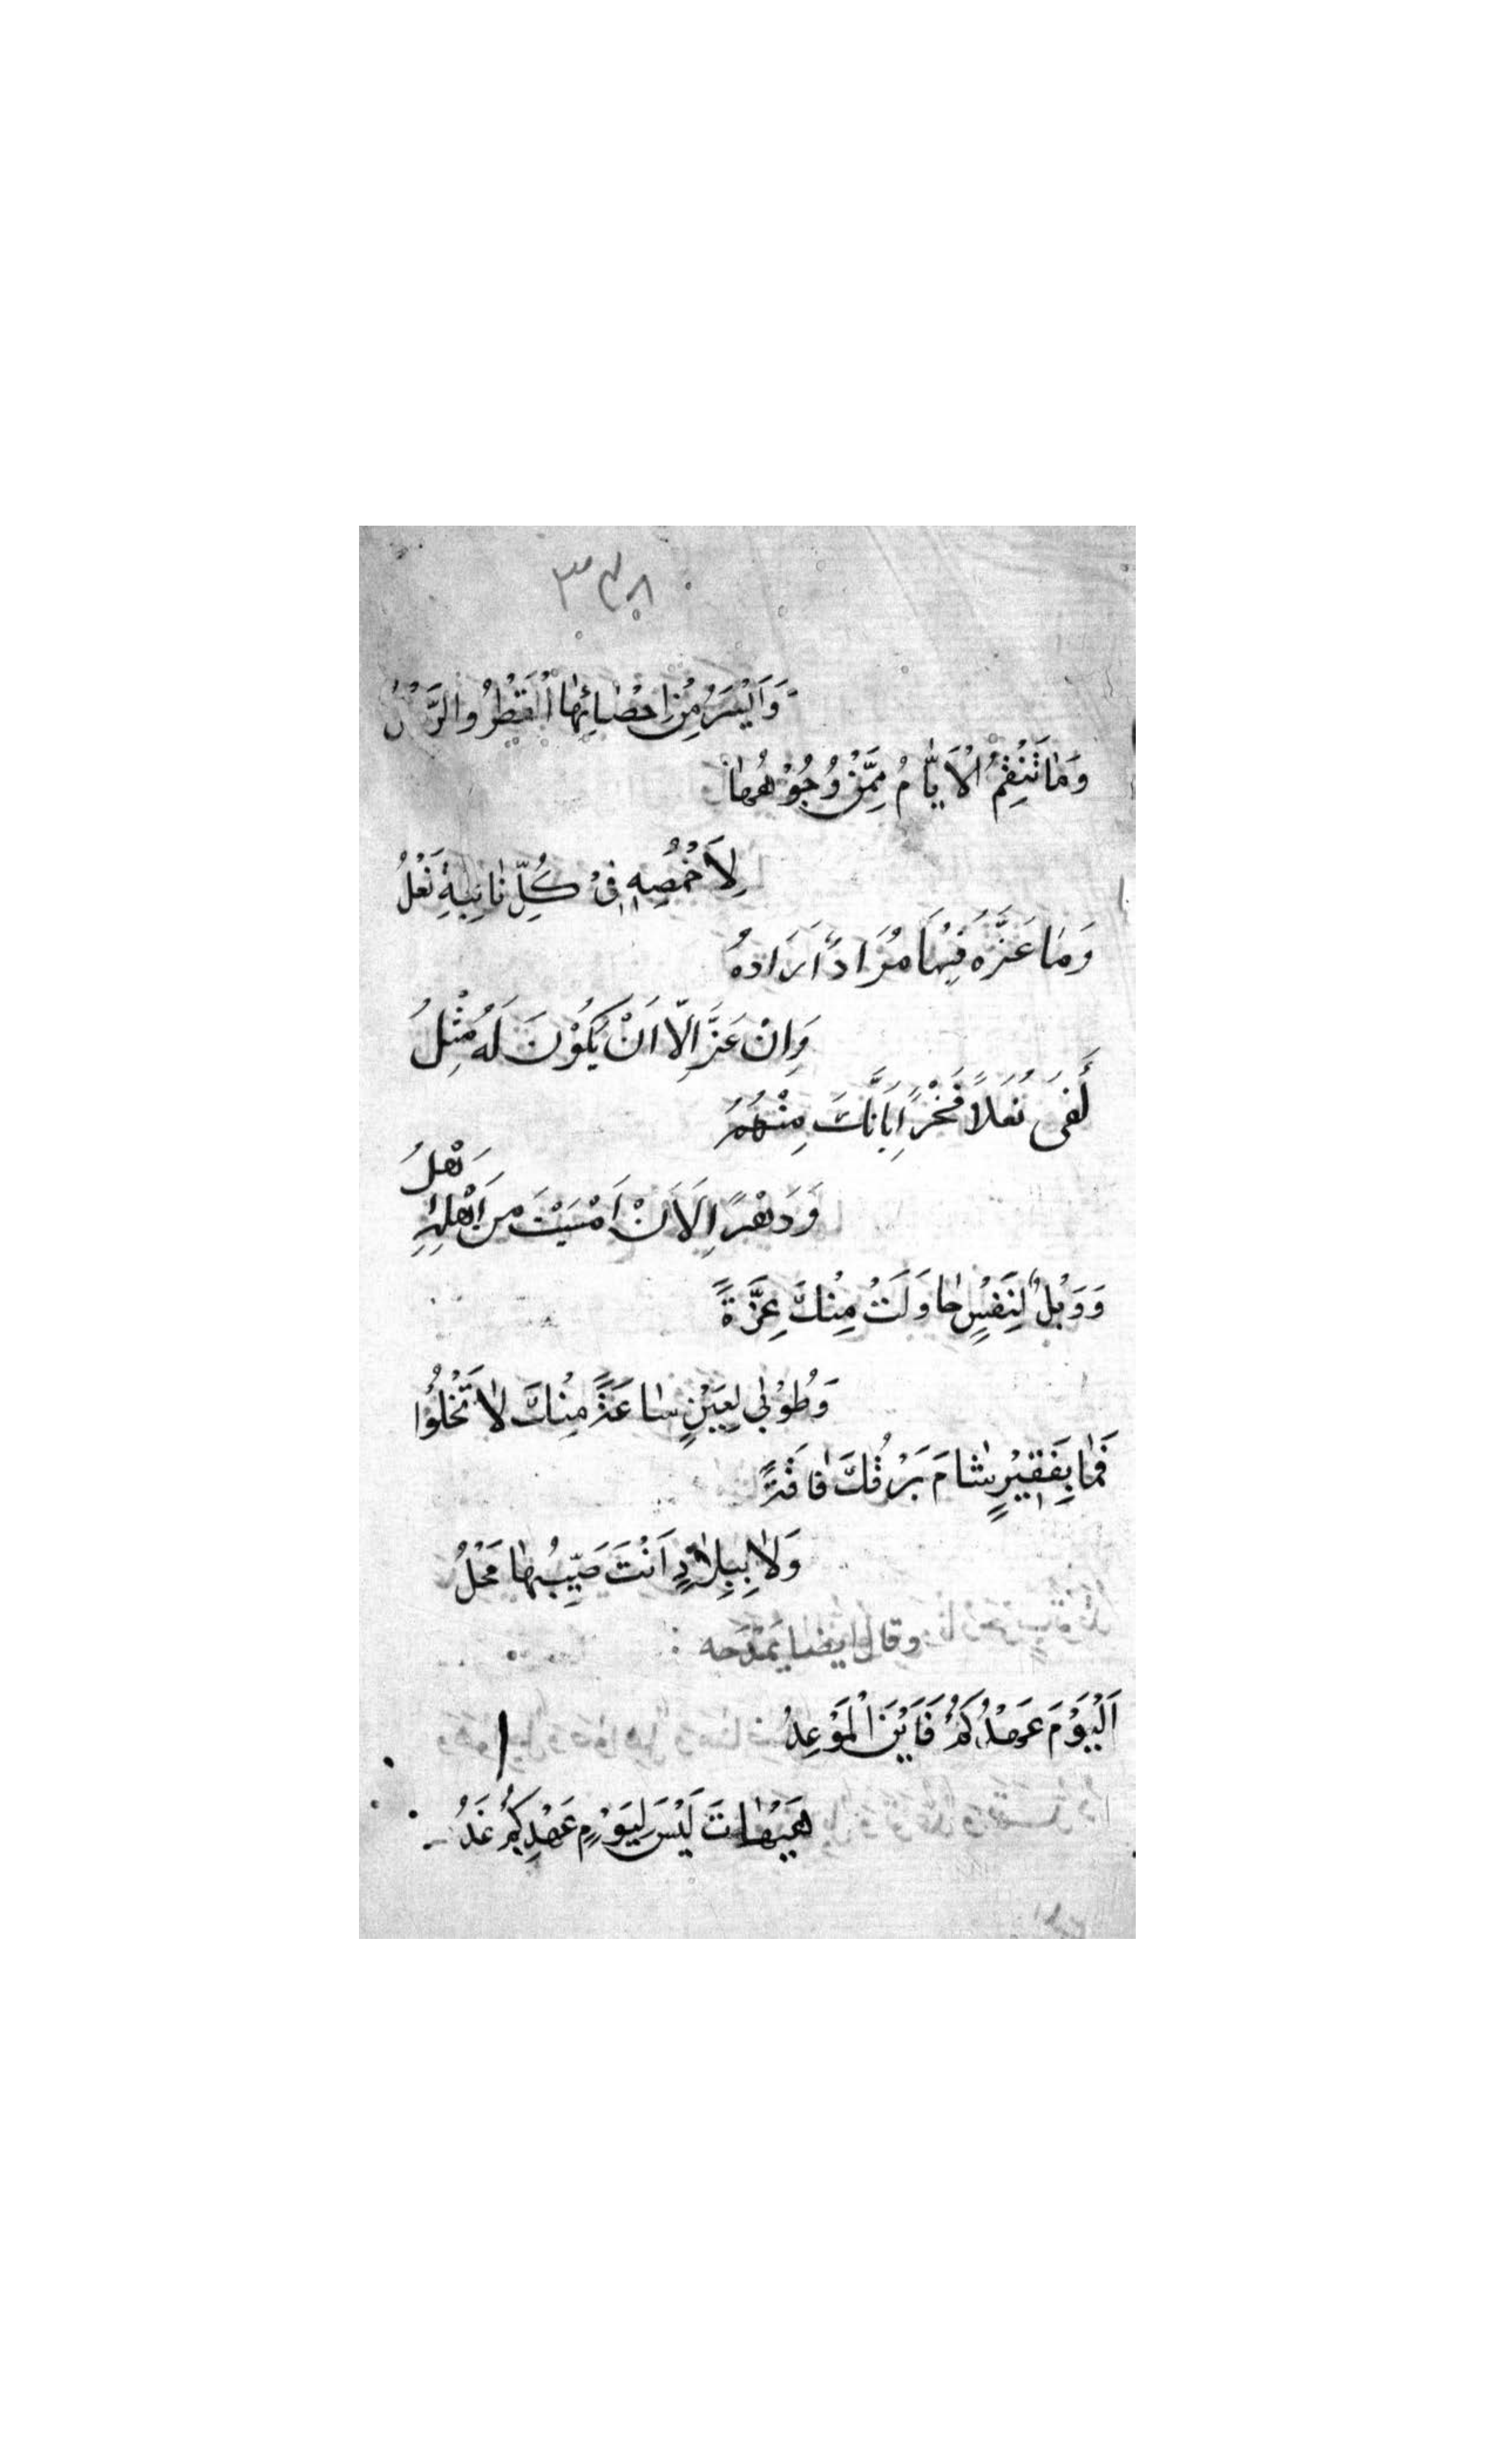 وَاَيْسَرُ مِنْ اِحْصَائِهَا الْقَطْرُ وَالرَّمْلُ
وَمَا تَنْقِمُ الْاَيَّامُ مِمَّنْ وُجُوْهُهَا
لِاَخْمُصِهٖ فِىْ كُلِّ نَائِبَةٍ نَعْلُ
وَمَا عَزَّهُ فِيْهَا مُرَادٌ اَرَادَهُ
وَاِنْ عَزَّ اِلَّا اَنْ يَكُوْنَ لَهُ مِثْلُ
كَفَى ثُعَلًا فَخْرًا بِاَنَّكَ مِنْهُمُ
وَدَهْرٌ لِاَنْ اَمْسَيْتَ مِنْ اَهْلِهٖ اَهْلُ
وَوَيْلٌ لِنَفْسٍ حَاوَلَتْ مِنْكَ غِرَّةً
وَطُوْبٰى لِعَيْنٍ سَاعَةً مِنْكَ لَا تَخْلُوْا
فَمَا بِفَقِيْرٍ شَامَ بَرْقَكَ فَاقَةٌ
وَلَا بِبِلَادٍ اَنْتَ صَيِّبُهَا مَحْلُ
وقال ايضا يمدحه
اَلْيَوْمَ عَهْدُكُمْ فَاَيْنَ الْمَوْعِدُ
هَيْهَاتَ لَيْسَ لِيَوْمِ عَهْدِكُمْ غَدُ